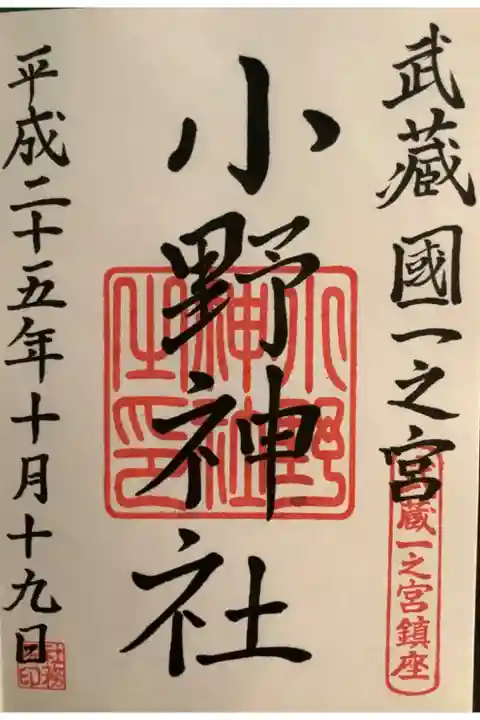 武蔵國一之宮
武蔵一之宮鎮座
小野神社
小野神社之印
平成二十五年十月十九日
社務之印